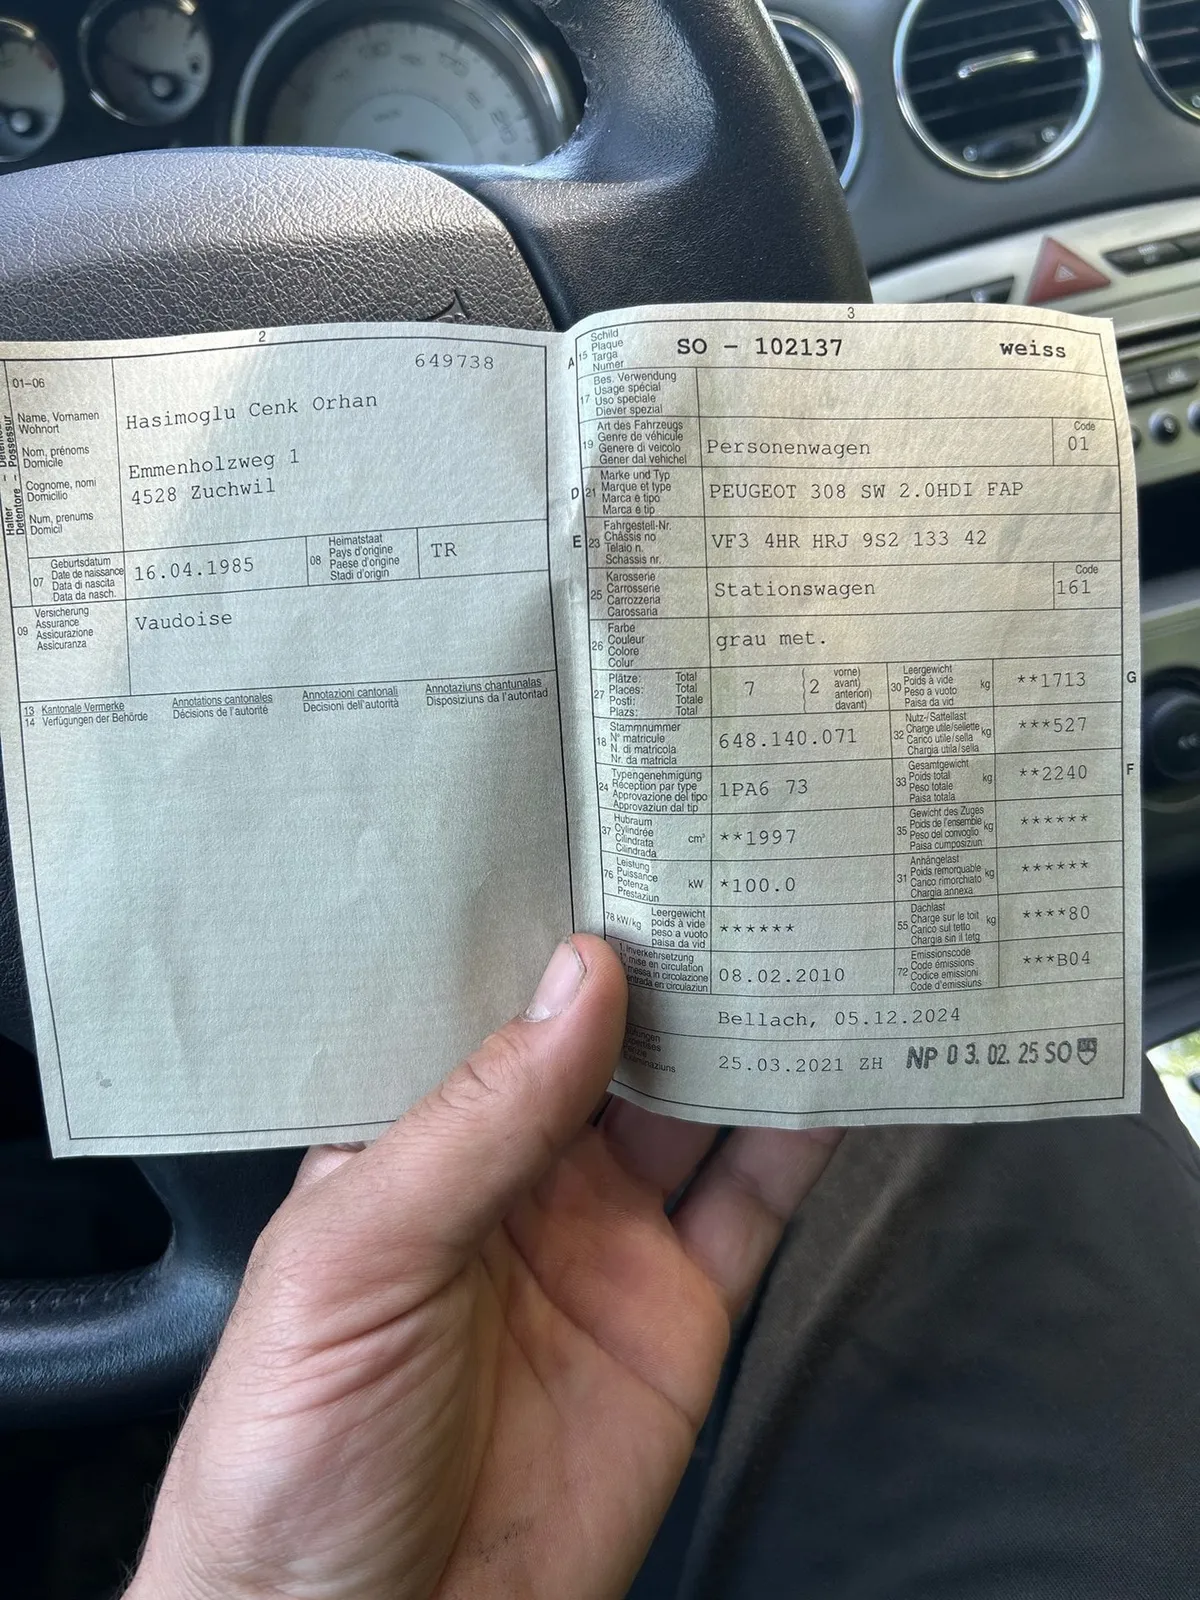 2
649738
01-06
Halter - Détenteur
Detentore - Possessur
Name, Vornamen
Wohnort
Nom, prénoms
Domicile
Cognome, nomi
Domicilio
Num, prenums
Domicil
Hasimoglu Cenk Orhan
Emmenholzweg 1
4528 Zuchwil
07
Geburtsdatum
Date de naissance
Data di nascita
Data da nasch.
16.04.1985
08
Heimatstaat
Pays d'origine
Paese d'origine
Stadi d'origin
TR
09
Versicherung
Assurance
Assicurazione
Assicuranza
Vaudoise
13 Kantonale Vermerke Annotations cantonales Annotazioni cantonali Annotaziuns chantunalas
14 Verfügungen der Behörde Décisions de l'autorité Decisioni dell'autorità Disposiziuns da l'autoritad
3
A 15
Schild
Plaque
Targa
Numer
SO - 102137 weiss
17
Bes. Verwendung
Usage spécial
Uso speciale
Diever spezial
19
Art des Fahrzeugs
Genre de véhicule
Genere di veicolo
Gener dal vehichel
Personenwagen
Code
01
D 21
Marke und Typ
Marque et type
Marca e tipo
Marca e tip
PEUGEOT 308 SW 2.0HDI FAP
E 23
Fahrgestell-Nr.
Châssis no
Telaio n.
Schassis nr.
VF3 4HR HRJ 9S2 133 42
25
Karosserie
Carrosserie
Carrozzeria
Carossaria
Stationswagen
Code
161
26
Farbe
Couleur
Colore
Colur
grau met.
27
Plätze: Total
Places: Total
Posti: Totale
Plazs: Total
7
2
vorne)
avant)
anterior)
davant)
30
Leergewicht
Poids à vide
Peso a vuoto
Paisa da vid
kg
**1713
G
18
Stammnummer
N° matricule
N. di matricola
Nr. da matricla
648.140.071
32
Nutz-/Sattellast
Charge utile/sellette
Carico utile/sella
Chargia utila/sella
kg
***527
24
Typengenehmigung
Réception par type
Approvazione del tipo
Approvaziun dal tip
1PA6 73
33
Gesamtgewicht
Poids total
Peso totale
Paisa totala
kg
**2240
F
37
Hubraum
Cylindrée
Cilindrata
Cilindrada
cm³
**1997
35
Gewicht des Zuges
Poids de l'ensemble
Peso del convoglio
Paisa cumposiziun
kg
******
76
Leistung
Puissance
Potenza
Prestaziun
kW
*100.0
31
Anhängelast
Poids remorquable
Carico rimorchiato
Chargia annexa
kg
******
78 kW/kg
Leergewicht
poids à vide
peso a vuoto
paisa da vid
******
55
Dachlast
Charge sur le toit
Carico sul tetto
Chargia sin il tetg
kg
****80
1. Inverkehrsetzung
mise en circulation
messa in circolazione
entrada en circulaziun
08.02.2010
72
Emissionscode
Code émissions
Codice emissioni
Code d'emissiuns
***B04
Bellach, 05.12.2024
25.03.2021 ZH NP 03.02.25 SO